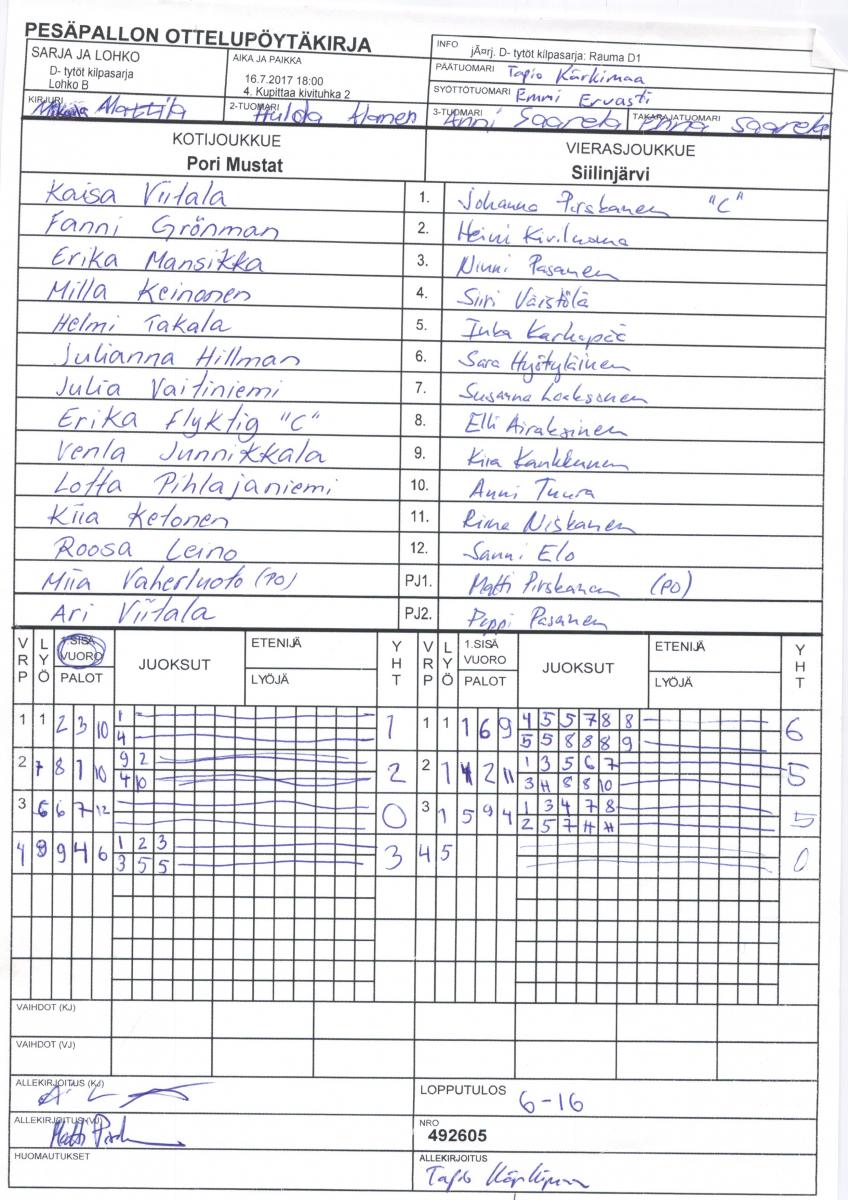 PESÄPALLON OTTELUPÖYTÄKIRJA
SARJA JA LOHKO
D- tytöt kilpasarja
Lohko B
AIKA JA PAIKKA
16.7.2017 18:00
4. Kupittaa kivituhka 2
INFO järj. D- tytöt kilpasarja: Rauma D1
PÄÄTUOMARI Tapio Kärkimaa
SYÖTTÖTUOMARI Emmi Ervasti
KIRJURI Mattila
2-TUOMARI Hulda
3-TUOMARI Anni Saarela
TAKARAJATUOMARI Enna Saarela
KOTIJOUKKUE
Pori Mustat
VIERASJOUKKUE
Siilinjärvi
Kaisa Viitala 1. Johanna Pirskanen "C"
Fanni Grönman 2. Heini Kiviluoma
Erika Mansikka 3. Ninni Pasanen
Milla Keinonen 4. Siiri Väistölä
Helmi Takala 5. Inka Karhapää
Julianna Hillman 6. Sara Hyötyläinen
Julia Vaitiniemi 7. Susanna Laaksonen
Erika Flyktig "C" 8. Elli Airaksinen
Venla Junnikkala 9. Kira Kankkunen
Lotta Pihlajaniemi 10. Anni Tuura
Kiia Ketonen 11. Riina Niskanen
Roosa Leino 12. Sanni Elo
Miia Vaherluoto (PO) PJ1. Matti Pirskanen (PO)
Ari Viitala PJ2. Peppi Pasanen
VRP LYÖ 1.SISÄ VUORO PALOT JUOKSUT ETENIJÄ LYÖJÄ YHT VRP LYÖ 1.SISÄ VUORO PALOT JUOKSUT ETENIJÄ LYÖJÄ YHT
1 1 2 3 10 1 1 1 1 1 6 9 4 5 5 7 8 8 6
4 5 5 8 8 8 9
2 7 8 1 10 9 2 2 2 1 2 11 1 3 5 6 7 5
4 10 3 8 8 10
3 6 6 7 12 0 3 1 5 9 4 1 3 4 7 8 5
2 5 7
4 9 4 6 1 2 3 3 4 5 0
3 5 5
VAIHDOT (KJ)
VAIHDOT (VJ)
ALLEKIRJOITUS (KJ)
LOPPUTULOS 6-16
ALLEKIRJOITUS (VJ) Matti
NRO
492605
HUOMAUTUKSET
ALLEKIRJOITUS
Tapio Kärkimaa